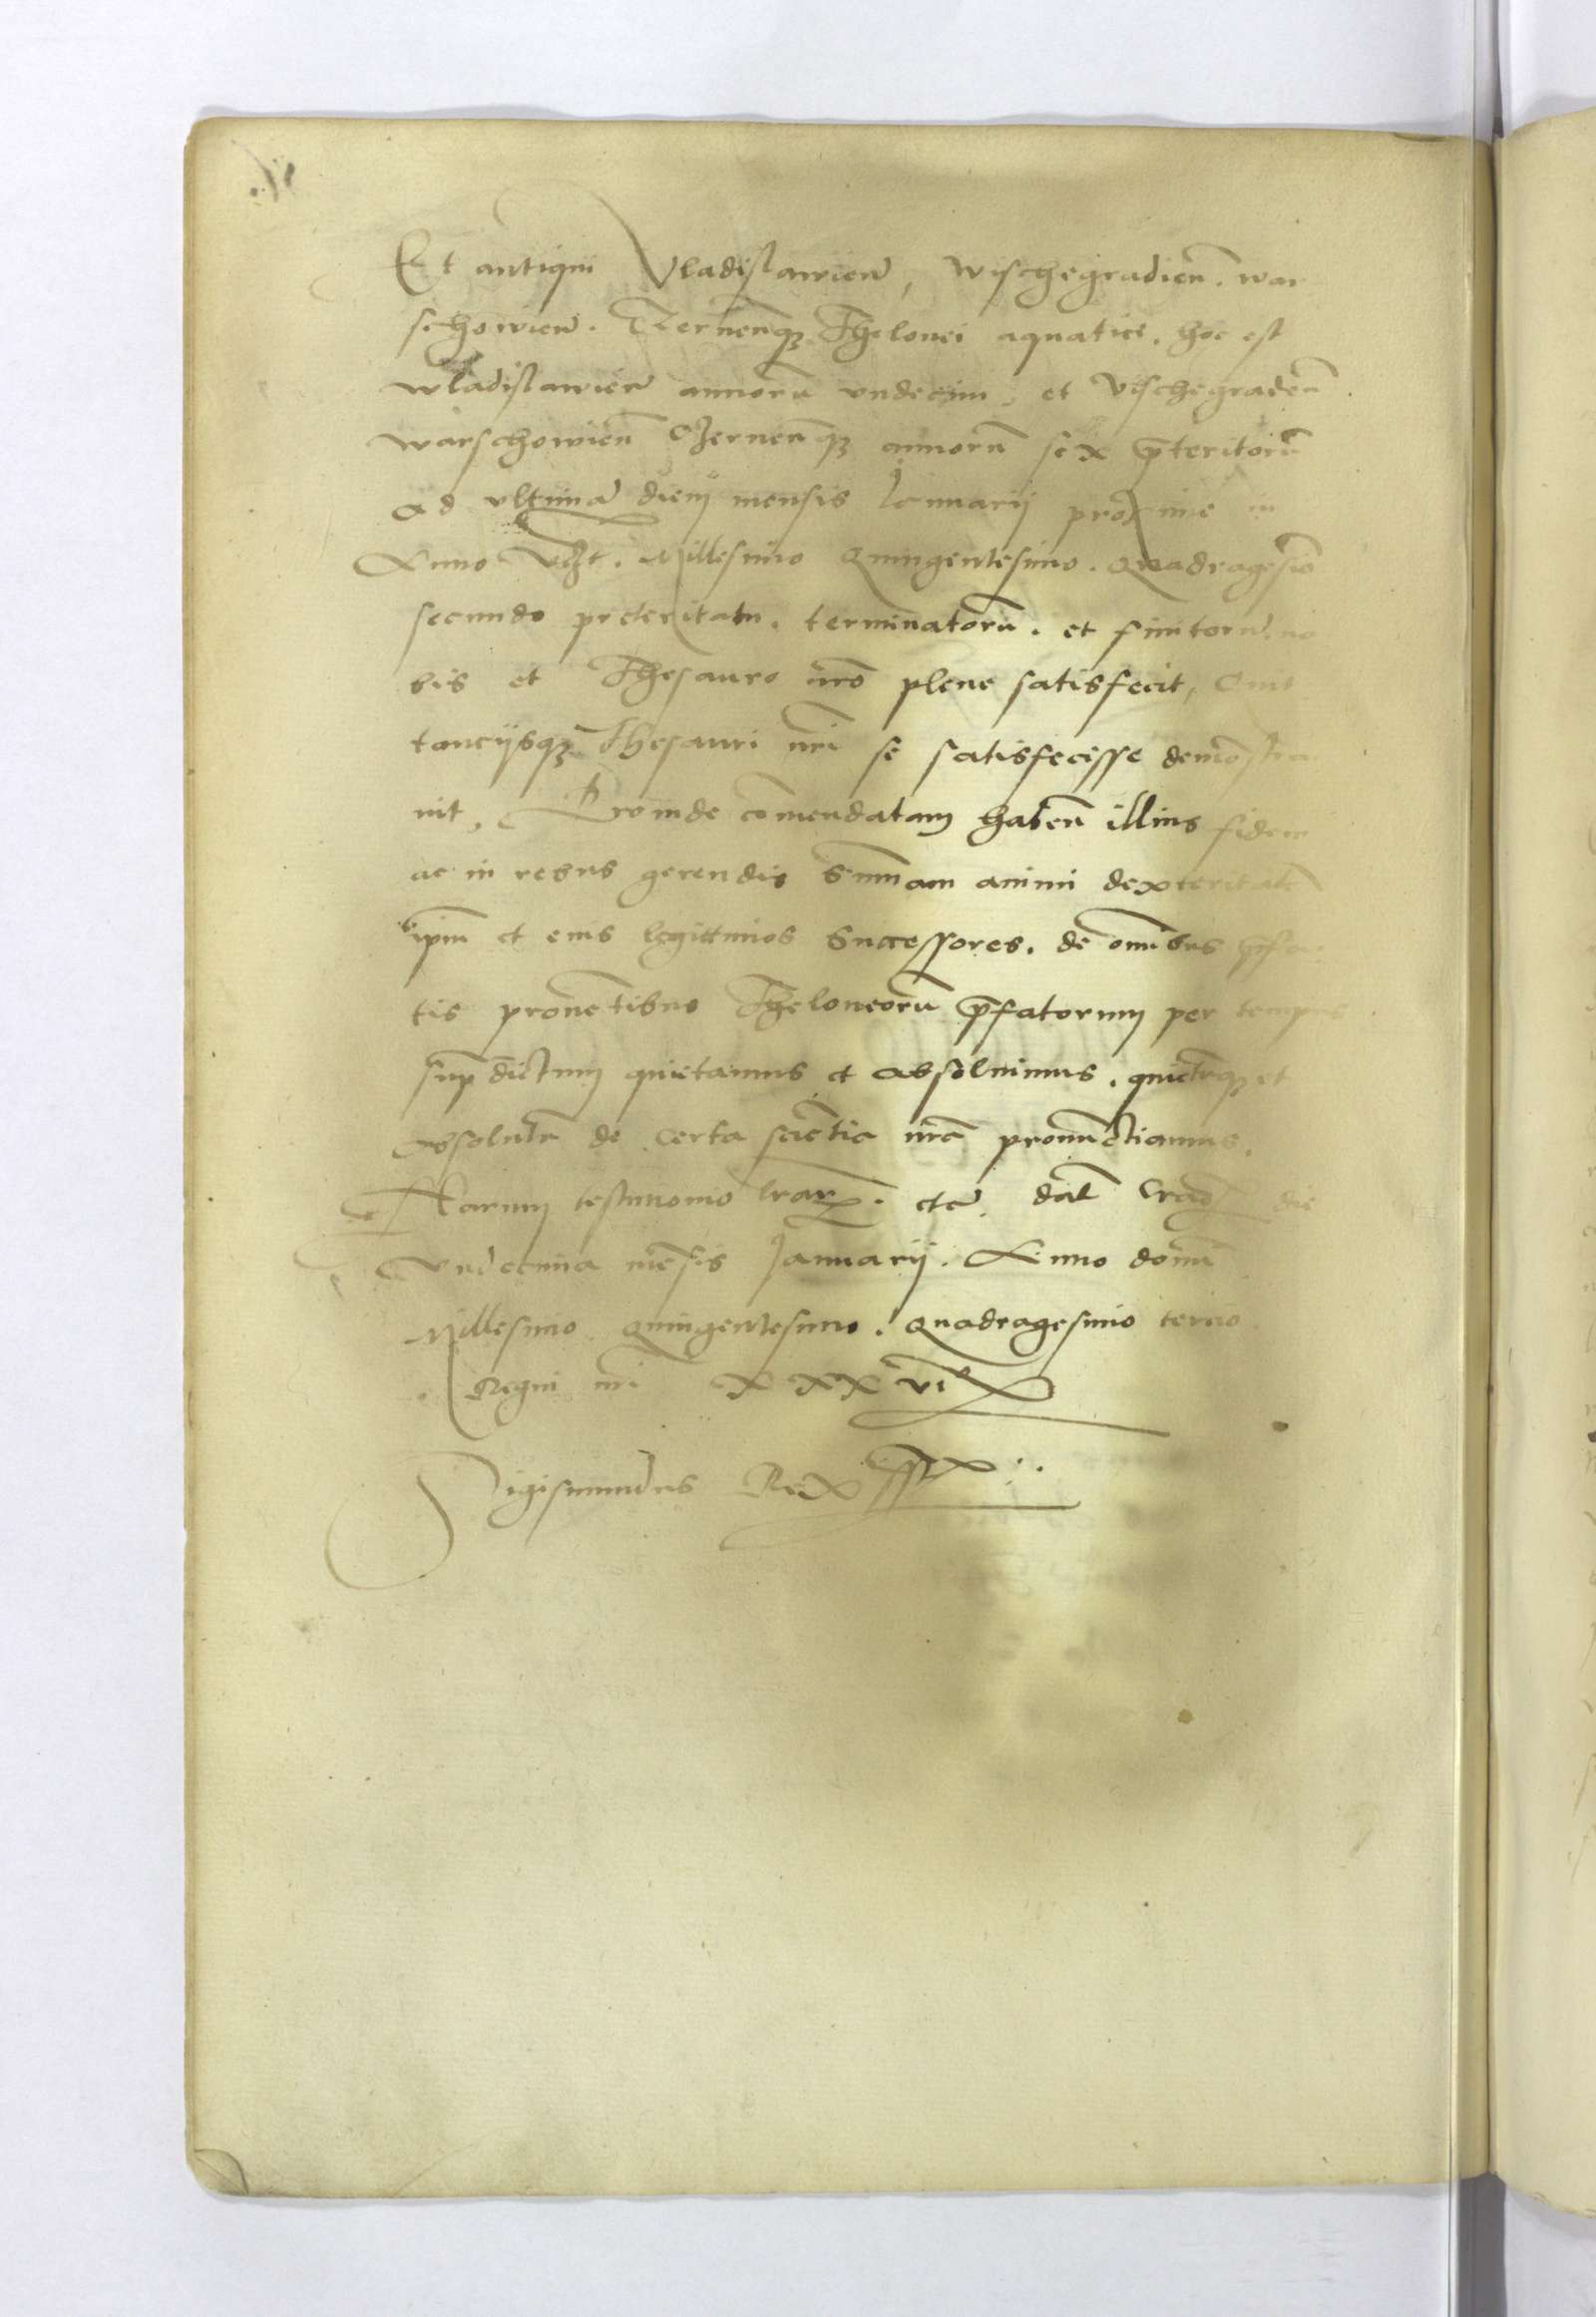 Et antiqui Vladislavien̄, Wischegradien̄. War
schovien̄. Czernen̄qȝ Thelonei aquatici, hoc est
Wladislavien̄ annorū undecim, et Vischegraden̄
Warschowien̄ Czernen̄qȝ annorū sex p̄teritorū
ad ultimā diem mensis Januarij proxime in
Anno vȝt. Millesimo Quingentesimo. Quadragesiō
secundo preteritam. terminatorū. et finitorū. no
bis et Thesauro nr̄o plene satisfecit, Quit
tancijsqȝ Thesauri nr̄i se satisfecisse demōstra
vit, Proinde cōmendatam haben̄ illius fidem
ac in rebus gerendis Sum̄am animi dexteritatē
ip̄m et eius legittimos Successores. de om̄ibus p̄fa
tis provētibus Theloneorū p̄fatorum per tempus
sup̄dictum quietamus et absolvimus. quietūqȝ et
absolutū de certa sciētia nr̄a pronūctiamus.
Harum testimonio lrarꝝ. etc̄. Dat̄ Crac̄ die
Undecima mēsis Januarij. Anno domī
Millesimo Quingentesimo. Quadragesimo tercio
Regni nr̄i XXXVI
Sigismundus Rex ss